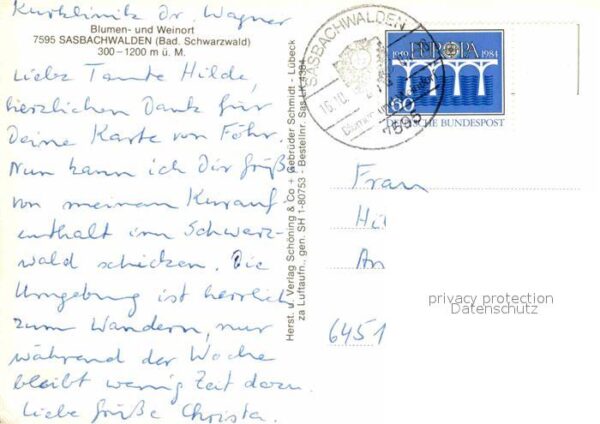 Kurklinik Dr. Wagner
Blumen- und Weinort
7595 SASBACHWALDEN (Bad. Schwarzwald)
300 - 1200 m ü. M.
Liebe Tante Hilde,
herzlichen Dank für
Deine Karte von Föhr.
Nun kann ich Dir Grüße
von meinem Kurauf-
enthalt im Schwarz-
wald schicken. Die
Umgebung ist herrlich
zum Wandern, nur
während der Woche
bleibt wenig Zeit dazu.
Liebe Grüße Christa.
Herst. u. Verlag Schöning & Co + Gebrüder Schmidt - Lübeck
za Luftaufn., gen. SH 1-80753 - Bestellnr. Sas LK 4384
SASBACHWALDEN
16.10.
Blumen- und
7595
1959 EUROPA 1984
60
DEUTSCHE BUNDESPOST
Frau
Hil
An
6451
privacy protection
Datenschutz